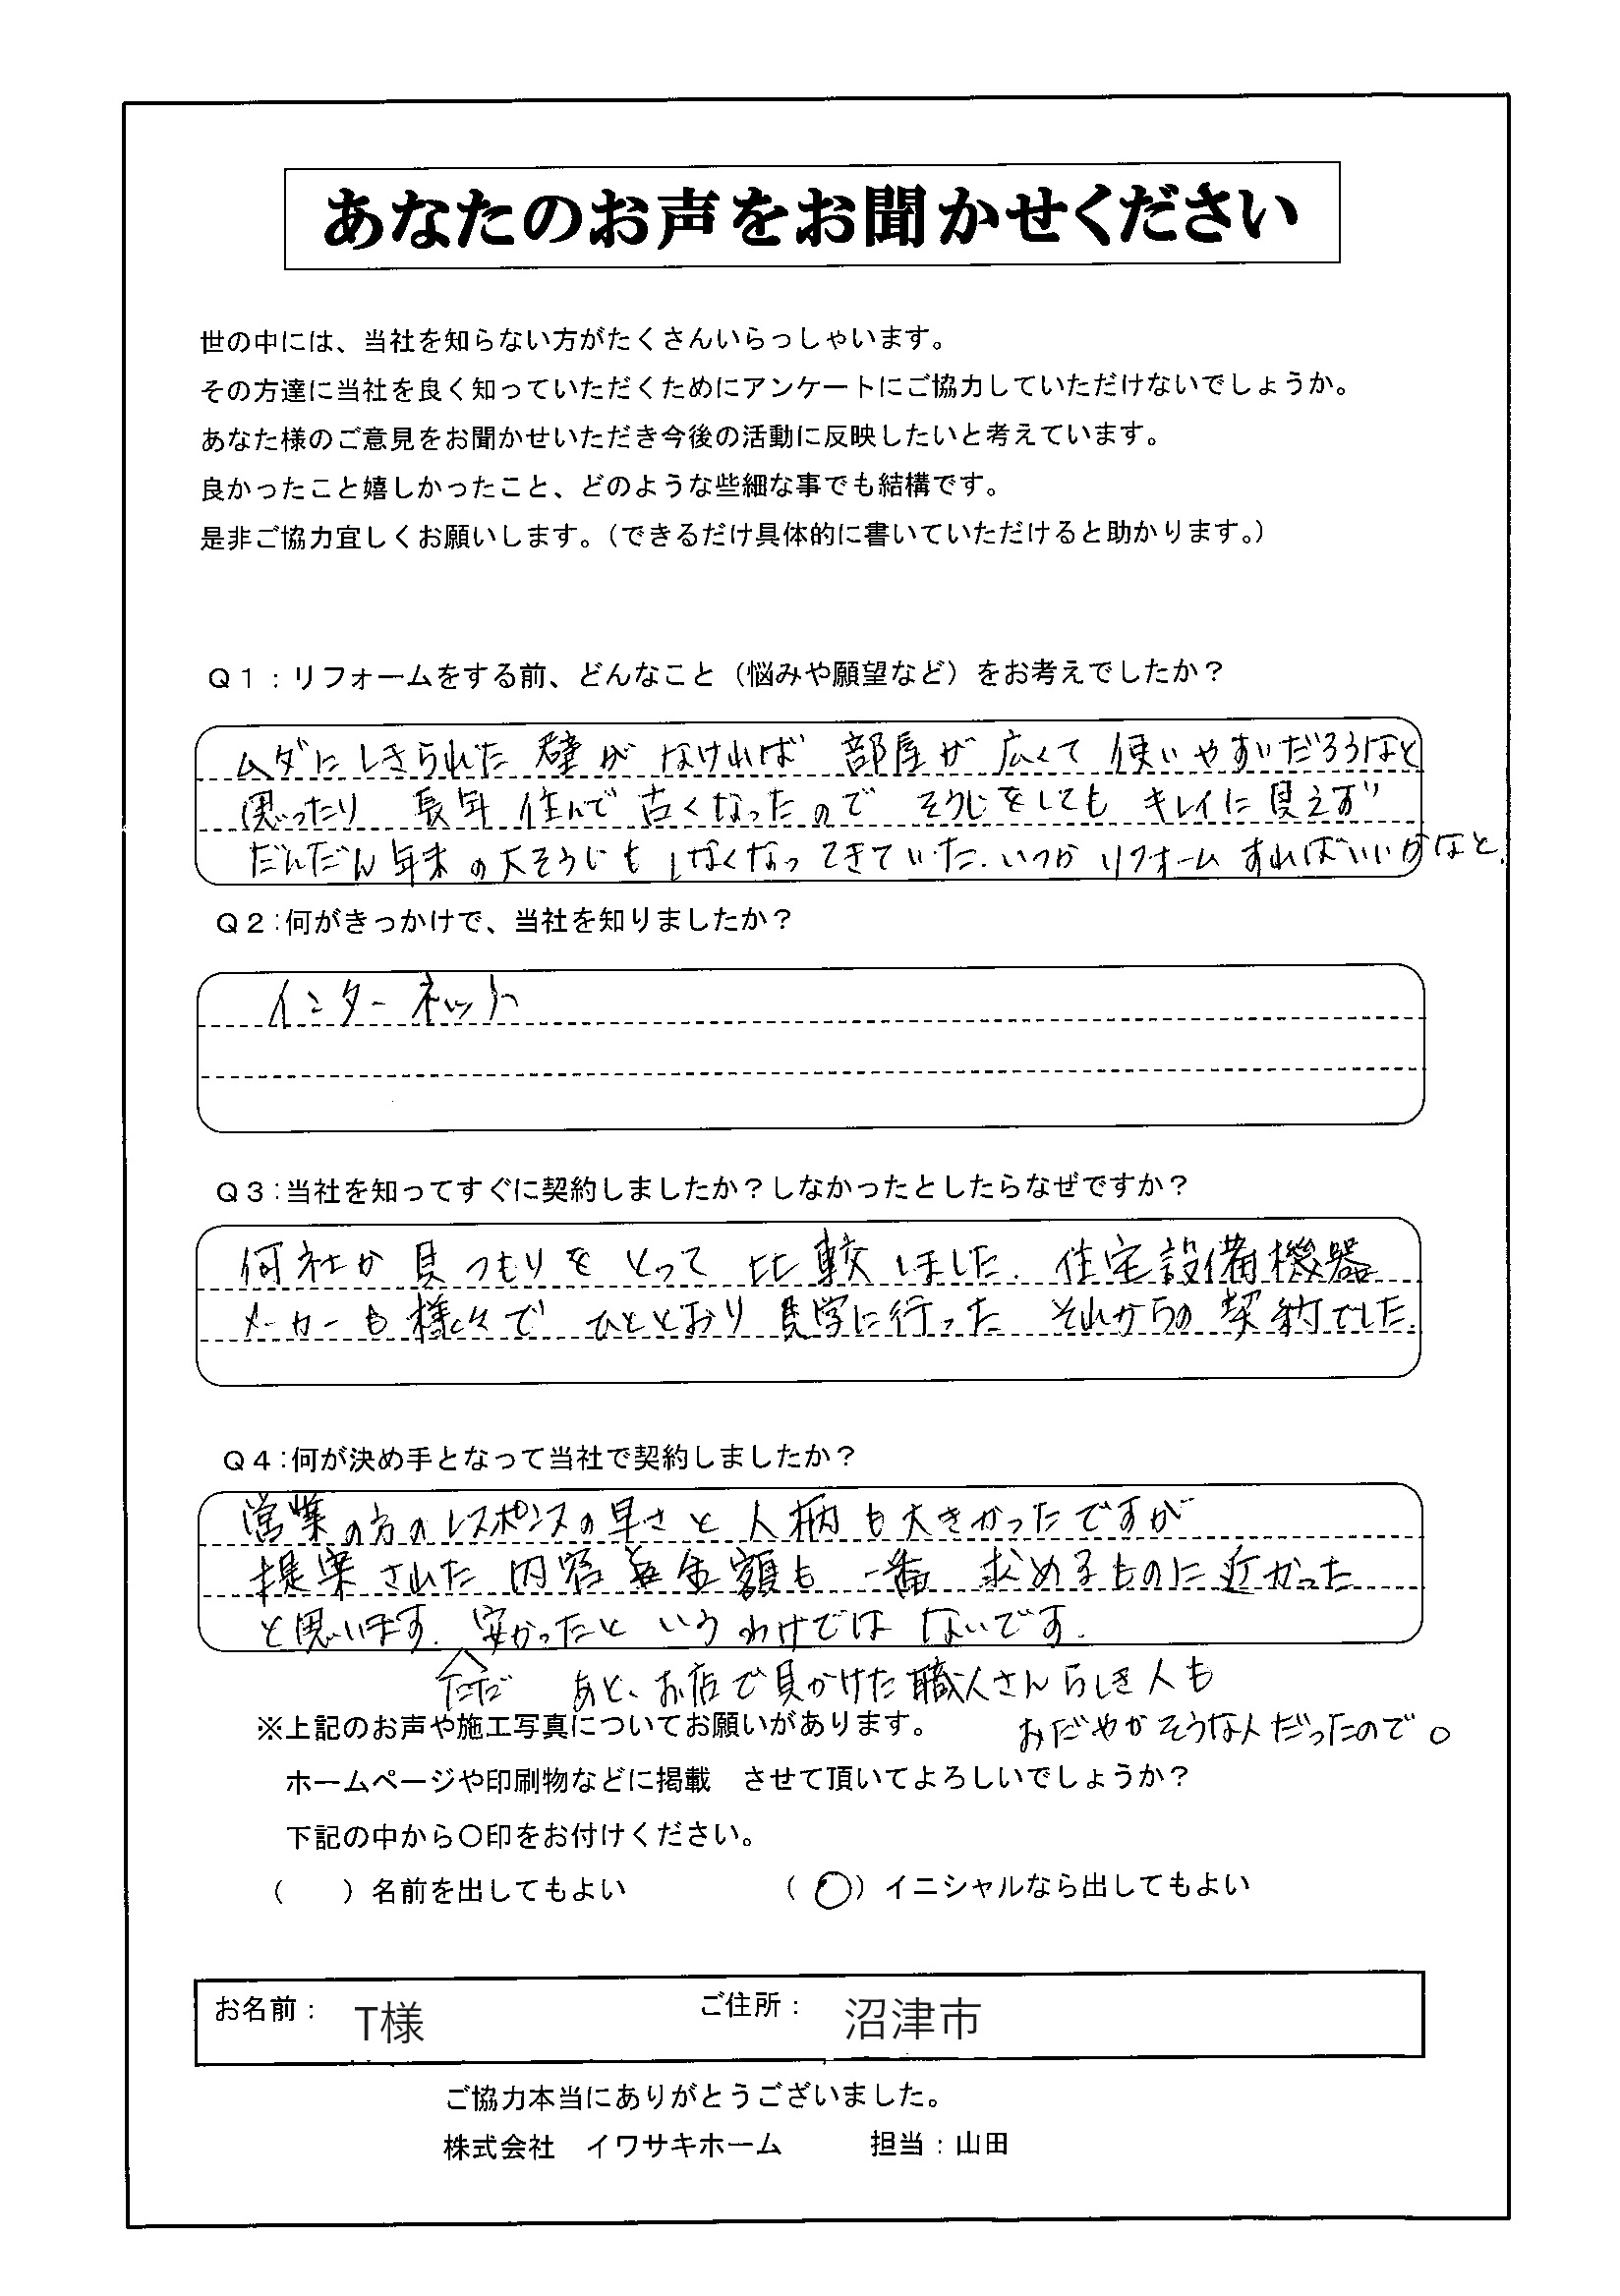 あなたのお声をお聞かせください
世の中には、当社を知らない方がたくさんいらっしゃいます。
その方達に当社を良く知っていただくためにアンケートにご協力していただけないでしょうか。
あなた様のご意見をお聞かせいただき今後の活動に反映したいと考えています。
良かったこと嬉しかったこと、どのような些細な事でも結構です。
是非ご協力宜しくお願いします。（できるだけ具体的に書いていただけると助かります。）
Q1：リフォームをする前、どんなこと（悩みや願望など）をお考えでしたか？
ムダにしきられた 壁が なければ 部屋が 広くて 使いやすいだろうなと
思ったり 長年 住んで 古くなったので そうじをしても キレイに見えず
だんだん年末の大そうじも しなくなってきていた. いつか リフォーム すればいいかなと.
Q2：何がきっかけで、当社を知りましたか？
インターネット
Q3：当社を知ってすぐに契約しましたか？しなかったとしたらなぜですか？
何社か 見つもりを とって 比較しました. 住宅設備機器
メーカーも様々で ひととおり 見学に行った それからの 契約でした.
Q4：何が決め手となって当社で契約しましたか？
営業の方のレスポンスの早さと 人柄も大きかったですが
提案された 内容と金額も 一番 求めるものに近かった
と思います. 安かったと いうわけでは ないです.
ただ あと、お店で見かけた職人さんらしき人も
おだやかそうな人だったので。
※上記のお声や施工写真についてお願いがあります。
ホームページや印刷物などに掲載　させて頂いてよろしいでしょうか？
下記の中から〇印をお付けください。
（　　）名前を出してもよい　（○）イニシャルなら出してもよい
お名前： T様 ご住所： 沼津市
ご協力本当にありがとうございました。
株式会社　イワサキホーム　担当：山田